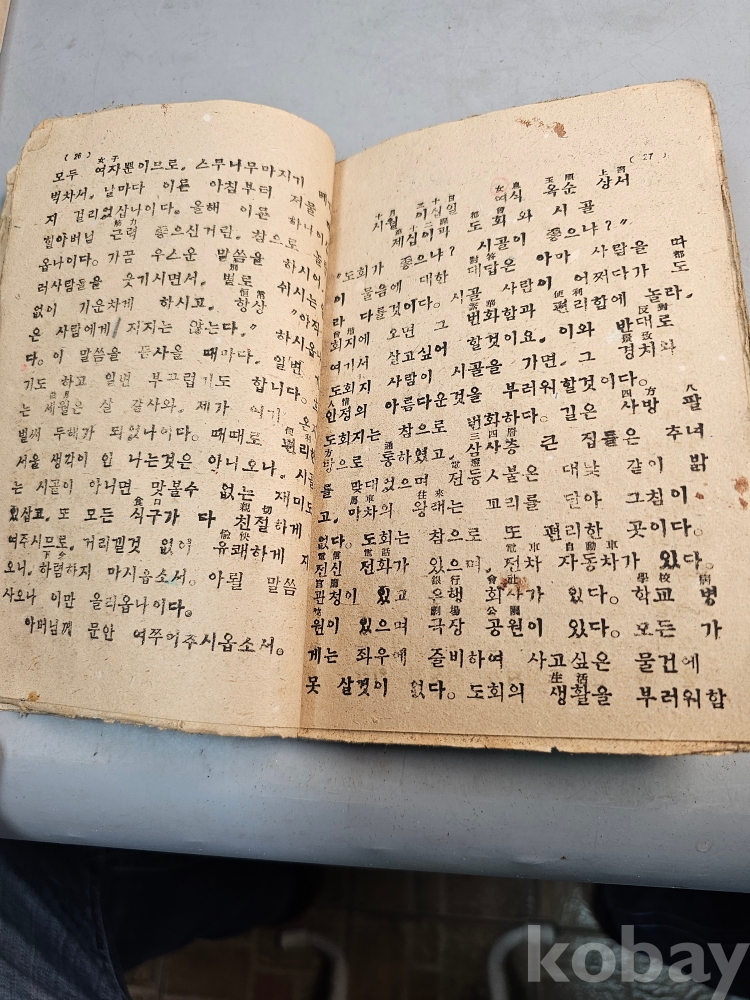 ( 26 )
女子
모두 여자뿐이므로. 스무나무마지기
벅차서. 날마다 이른 아침부터 저물
지 걸리었삽나이다. 올해 이른 하나이
筋力
할아버님 근력 좋으신거린. 참으로 놀
옵나이다. 가끔 우스운 말씀을 하시어
러사람들을 웃기시면서. 별로 쉬시는
恒常
없이 기운차게 하시고. 항상 "아직
은 사람에게 지지는 않는다." 하시옵
다. 이 말씀을 듣사올 때마다. 일변
기도 하고 일변 부끄럽기도 합니다.
歲月
는 세월은 살 같사와. 제가 여기 온
便利
벌써 두해가 되었나이다. 때때로 편리한
서울 생각이 안 나는것은 아니오나. 시골
는 시골이 아니면 맛볼수 없는 재미도
食口 親切
있삽고. 또 모든 식구가 다 친절하게
愉快
여주시므로. 거리낄것 없이 유쾌하게 지
下念
오니. 하렴하지 마시옵소서. 아뢸 말씀
사오나 이만 올리옵나이다.
아버님께 문안 여쭈어주시옵소서.
( 27 )
十月 二十日 女息 玉順 上書
시월 이십일 여식 옥순 상서
第十二課 都會
제십이과 도회와 시골
"도회가 좋으냐? 시골이 좋으냐?"
對答
이 물음에 대한 대답은 아마 사람을 따
都
라 다를것이다. 시골 사람이 어쩌다가 도
會 繁華 便利
회지에 오면 그 번화함과 편리함에 놀라.
反對
여기서 살고싶어 할것이요. 이와 반대로
景致
도회지 사람이 시골을 가면. 그 경치와
人情
인정의 아름다운것을 부러워할것이다.
四方 八
도회지는 참으로 번화하다. 길은 사방 팔
方 通 三四層
방으로 통하였고. 삼사층 큰 집들은 추녀
電燈
를 맞대었으며 전등불은 대낮 같이 밝
馬車 往來
고. 마차의 왕래는 꼬리를 달아 그침이
없다. 도회는 참으로 또 편리한 곳이다.
電信 電話 電車 自動車
전신 전화가 있으며. 전차 자동차가 있다.
官廳 銀行 會社 學校 病
관청이 있고 은행 회사가 있다. 학교 병
院 劇場 公園
원이 있으며 극장 공원이 있다. 모든 가
게는 좌우에 즐비하여 사고싶은 물건에
生活
못 살것이 없다. 도회의 생활을 부러워함
kobay